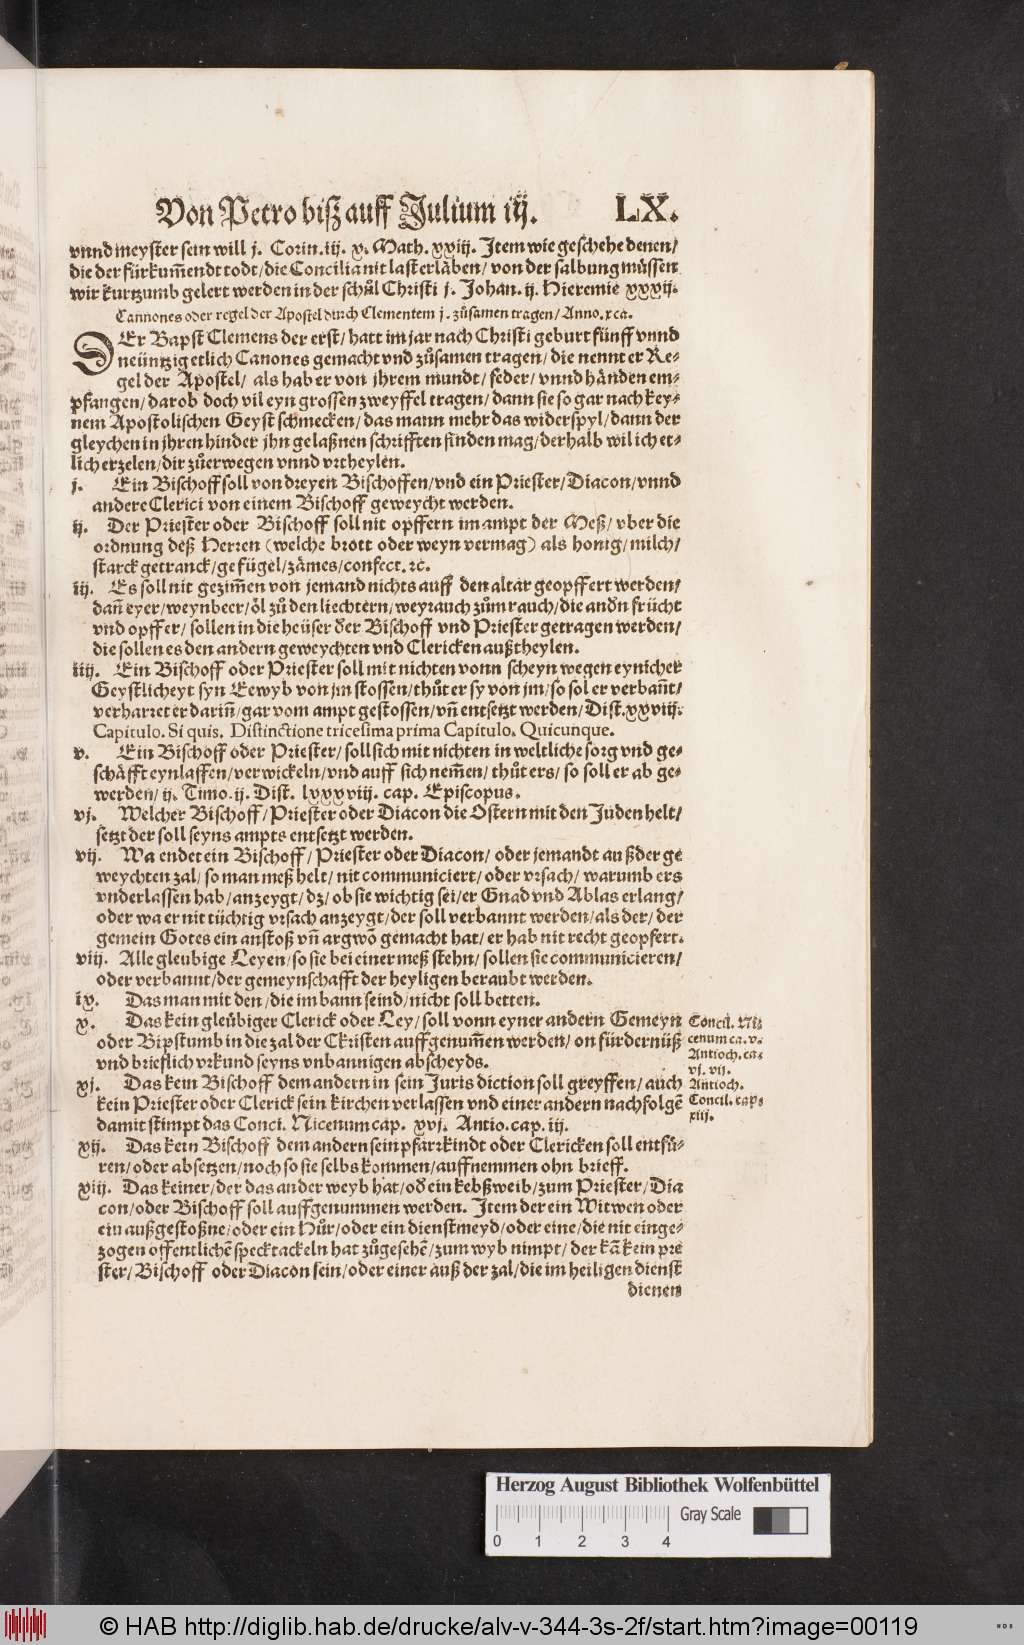 Von Petro biß auff Julium iij. LX.
vnnd meyster sein will j. Corin. iij. x. Math. xxiij. Item wie geschehe denen/
die der fürkum̃endt todt/ die Concilia nit lasterläben/ von der salbung müssen
wir kurtzumb gelert werden in der schůl Christi j. Johan. ij. Hieremie xxxij.
Cannones oder regel der Apostel durch Clementem j. zůsamen tragen/ Anno. xca.
DEr Bapst Clemens der erst/ hatt im jar nach Christi geburt fünff vnnd
neüntzig etlich Canones gemacht vnd zůsamen tragen/ die nennt er Re-
gel der Apostel/ als hab er von jhrem mundt/ feder/ vnnd händen em-
pfangen/ darob doch vil eyn grossen zweyffel tragen/ dann sie so gar nach key-
nem Apostolischen Geyst schmecken/ das mann mehr das widerspyl/ dann der
gleychen in jhren hinder jhn gelaßnen schrifften finden mag/ derhalb wil ich et-
lich erzelen/ dir zů erwegen vnnd vrtheylen.
j. Ein Bischoff soll von dreyen Bischoffen/ vnd ein Priester/ Diacon/ vnnd
andere Clerici von einem Bischoff geweycht werden.
ij. Der Priester oder Bischoff soll nit opffern im ampt der Meß/ vber die
ordnung deß Herren (welche brott oder weyn vermag) als honig/ milch/
starck getranck/ gefügel/ zämes/ confect. ꝛc.
iij. Es soll nit gezim̃en von jemand nichts auff den altar geopffert werden/
dañ eyer/ weynbeer/ öl zů den liechtern/ weyrauch zům rauch/ die andn frücht
vnd opffer/ sollen in die heüser der Bischoff vnd Priester getragen werden/
die sollen es den andern geweychten vnd Clericken außtheylen.
iiij. Ein Bischoff oder Priester soll mit nichten vonn scheyn wegen eynicher
Geystlicheyt syn Eewyb von jm stossen/ thůt er sy von jm/ so sol er verbañt/
verharret er dariñ/ gar vom ampt gestossen/ vñ entsetzt werden/ Dist. xxviij.
Capitulo. Si quis. Distinctione tricesima prima Capitulo. Quicunque.
v. Ein Bischoff oder Priester/ soll sich mit nichten in weltliche sorg vnd ge-
schäfft eynlassen/ verwickeln/ vnd auff sich nem̃en/ thůt ers/ so soll er ab ge-
werden/ ij. Timo. ij. Dist. lxxxviij. cap. Episcopus.
vj. Welcher Bischoff/ Priester oder Diacon die Ostern mit den Juden helt/
setzt der soll seyns ampts entsetzt werden.
vij. Wa endet ein Bischoff/ Priester oder Diacon/ oder jemandt außder ge
weychten zal/ so man meß helt/ nit communiciert/ oder vrsach/ warumb ers
vnderlassen hab/ anzeygt/ dz/ ob sie wichtig sei/ er Gnad vnd Ablas erlang/
oder wa er nit tüchtig vrsach anzeygt/ der soll verbannt werden/ als der/ der
gemein Gotes ein anstoß vñ argwõ gemacht hat/ er hab nit recht geopfert.
viij. Alle gleubige Leyen/ so sie bei einer meß stehn/ sollen sie communicieren/
oder verbannt/ der gemeynschafft der heyligen beraubt werden.
ix. Das man mit den/ die im bann seind/ nicht soll betten.
x. Das kein gleübiger Clerick oder Ley/ soll vonn eyner andern Gemeyn
oder Bipstumb in die zal der Christen auffgenum̃en werden/ on fürdernüß
vnd brieflich vrkund seyns vnbannigen abscheyds.
xj. Das kein Bischoff dem andern in sein Juris diction soll greyffen/ auch
kein Priester oder Clerick sein kirchen verlassen vnd einer andern nachfolgẽ
damit stimpt das Conci. Nicenum cap. xvj. Antio. cap. iij.
xij. Das kein Bischoff dem andern sein pfarrkindt oder Clericken soll entfü-
ren/ oder absetzen/ noch so sie selbs kommen/ auffnemmen ohn brieff.
xiij. Das keiner/ der das ander weyb hat/ od ein kebßweib/ zum Priester/ Dia
con/ oder Bischoff soll auffgenummen werden. Item der ein Witwen oder
ein außgestoßne/ oder ein Hůr/ oder ein dienstmeyd/ oder eine/ die nit einge-
zogen offentlichẽ specktackeln hat zůgesehẽ/ zum wyb nimpt/ der kã kein prie
ster/ Bischoff oder Diacon sein/ oder einer auß der zal/ die im heiligen dienst
dienen
Concil. Ni-
cenum ca. v.
Antioch. ca.
vj. vij.
Antioch.
Concil. cap.
xiij.
Herzog August Bibliothek Wolfenbüttel
Gray Scale
0 1 2 3 4
© HAB http://diglib.hab.de/drucke/alv-v-344-3s-2f/start.htm?image=00119